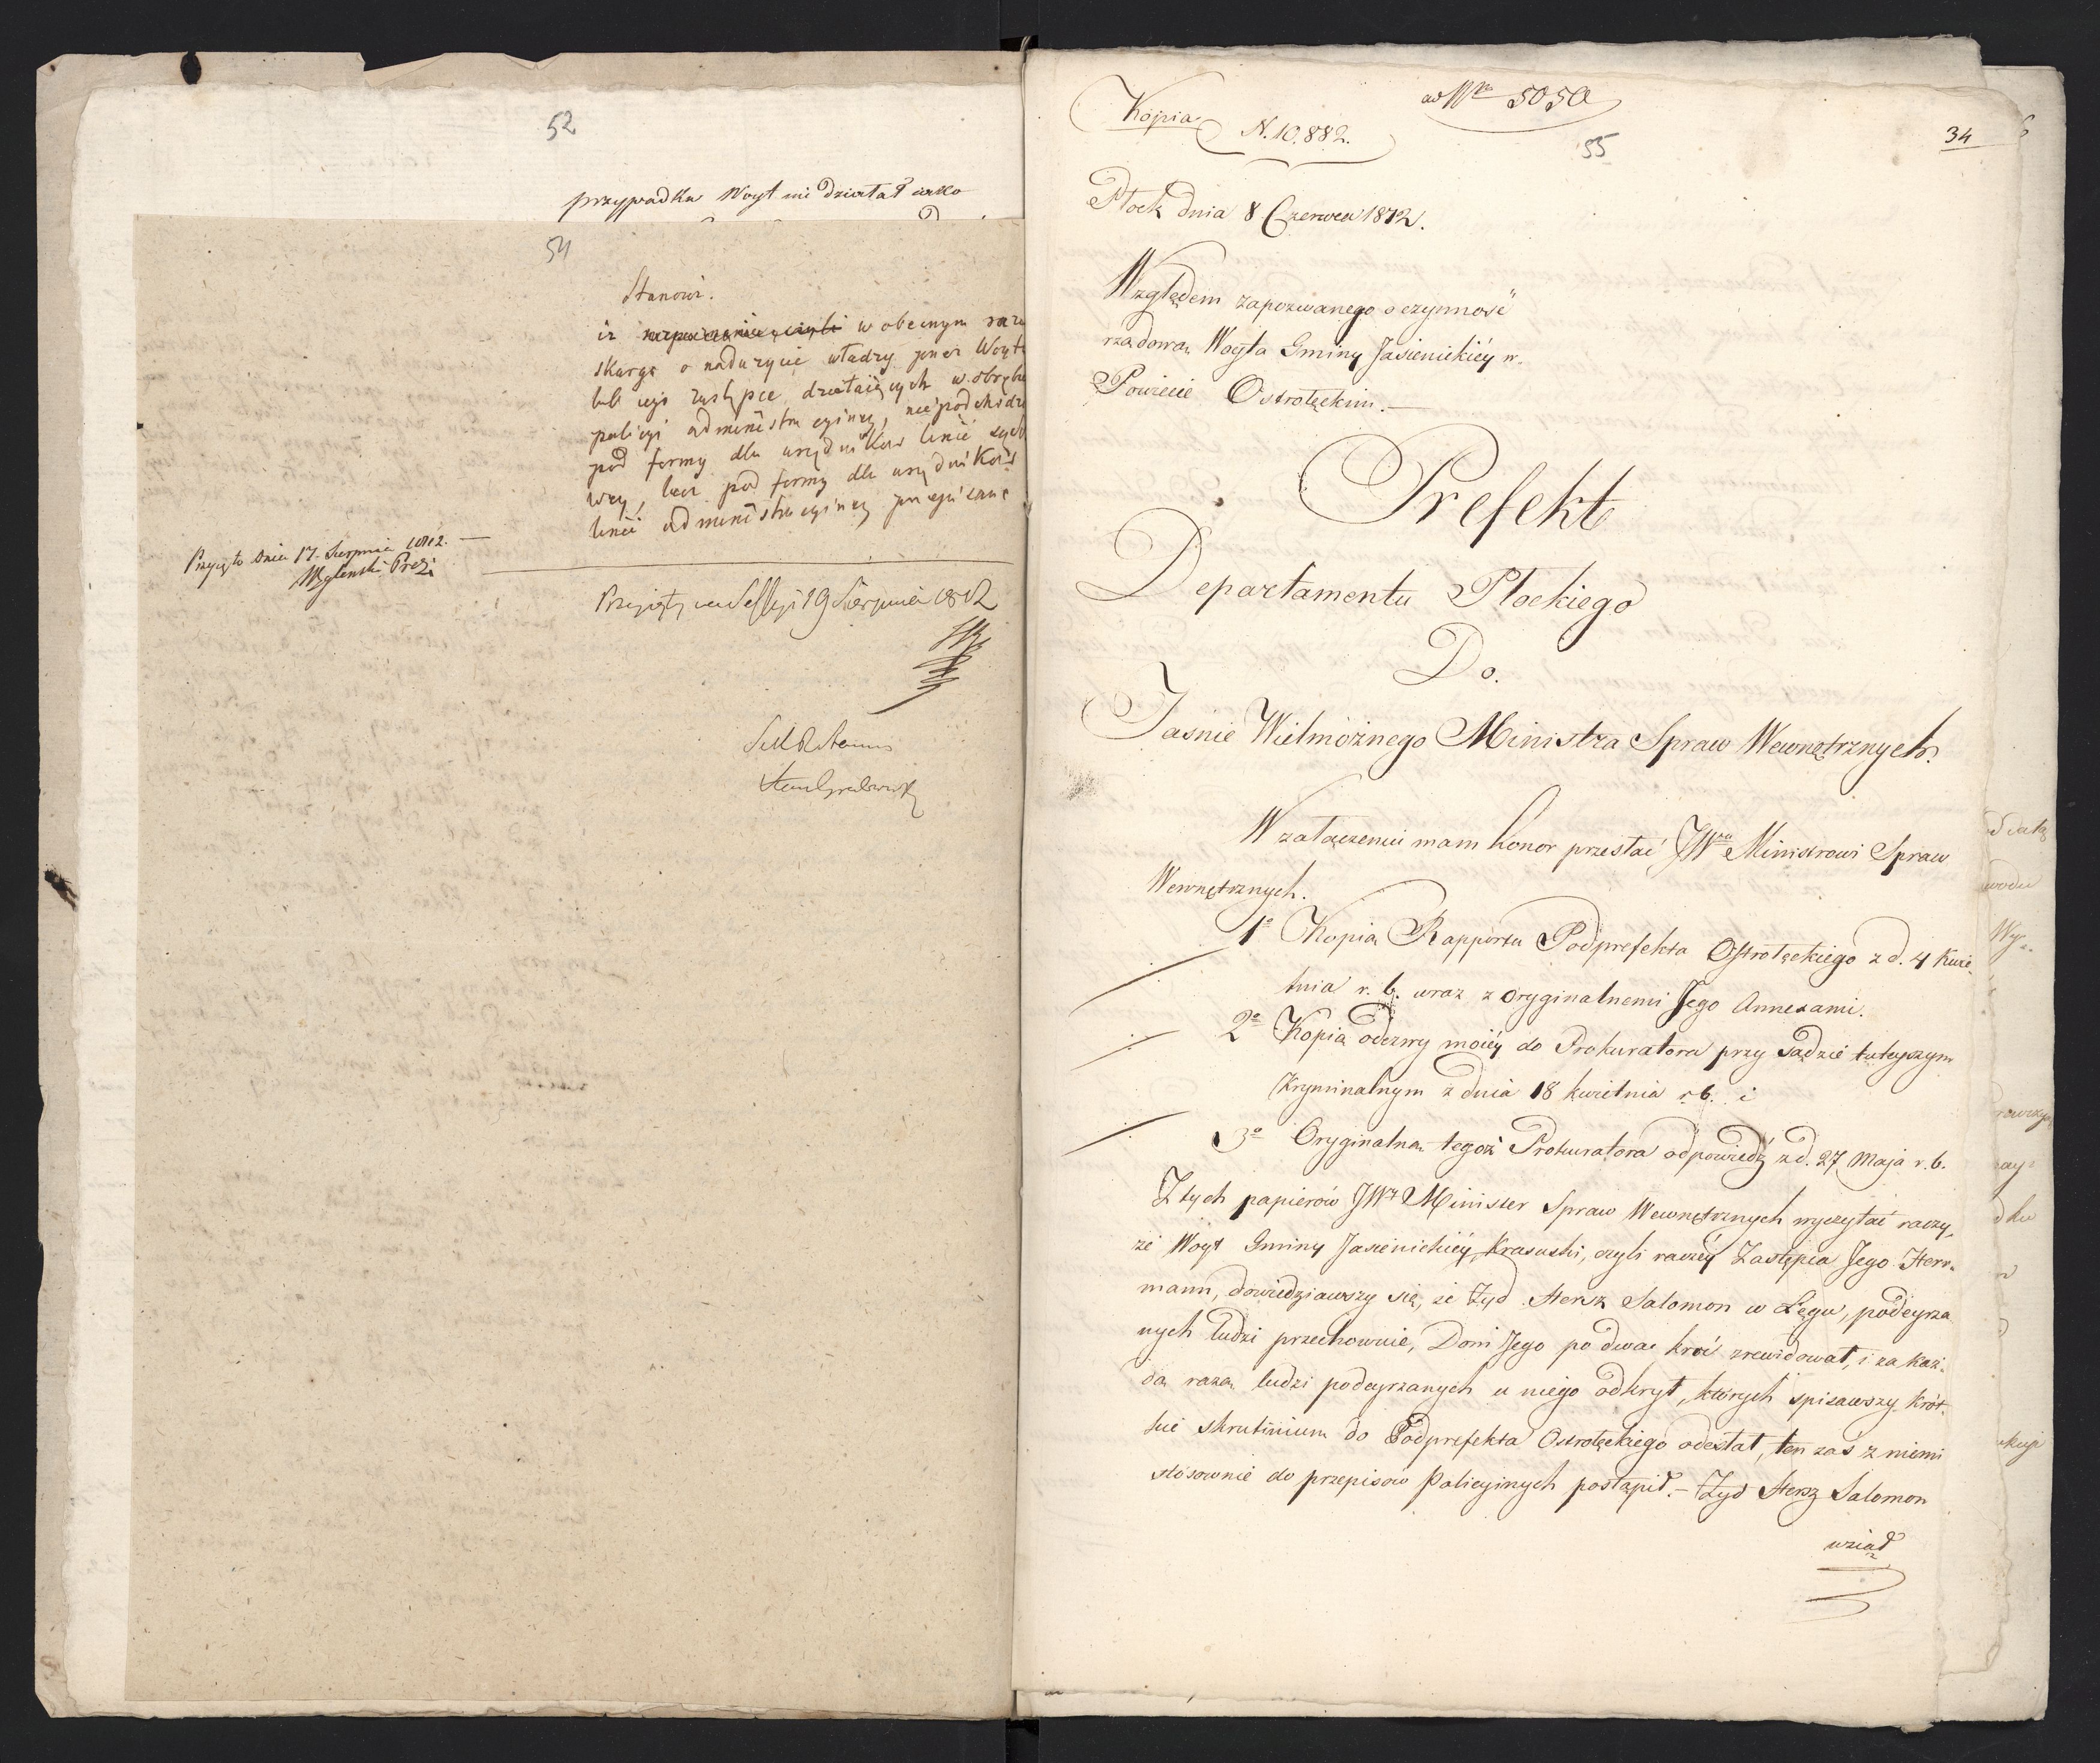 52
przypadku Woyt nie działał iako
54
Stanowi.
iż w obecnym razie
skarga o nadużycie władzy przez Woyta
lub iego zastępcę działaiących w obrębie
policyi administracyiney, nie podchodzi
pod formy dla urzędników linii sądo
wey, lecz pod formy dla urzędników
linii administracyiney przepisane
Przyięto dnia 17. Sierpnia 1812. —
Węgleński Prez.
Przyięty na Sessyi 19 Sierpnia 1812
Kopia
N. 10,882.
ad Nrum 5050
55
34
Płock dnia 8 Czerwca 1812.
Względem zapozwanego o czynność
rządową Woyta Gminy Jasienickiéy w
Powiecie Ostrołęckim. —
Prefekt
Departamentu Płockiego
Do.
Jaśnie Wielmożnego Ministra Spraw Wewnętrznych.
W załączeniu mam honor przesłać JWmu Ministrowi Spraw
Wewnętrznych.
1o Kopią Rapportu Podprefekta Ostrołęckiego z d. 4 Kwie-
tnia r. b. wraz z oryginalnemi Jego Annexami.
2o Kopią odezwy moiéy do Prokuratora przy Sądzie tuteyszym
Kryminalnym z dnia 18 kwietnia r. b. i
3o Oryginalną tegoż Prokuratora odpowiedź z d. 27 Maja r. b.
Z tych papierów JWny Minister Spraw Wewnętrznych wyczytać raczy,
że Woyt Gminy Jasienickiéy Krasuski, czyli raczéy Zastępca Jego Herr-
mann, dowiedziawszy się, że Żyd Hersz Salomon w Łęgu, podeyrza
nych ludzi przechowuie, Dom Jego po dwa kroć zrewidował, i za każ-
dą razą ludzi podeyrzanych u niego odkrył, których spisawszy krót-
kie skrutinium do Podprefekta Ostrołęckiego odesłał, ten zaś z niemi
stósownie do przepisow Policyinych postąpił. — Żyd Hersz Salomon
wziął